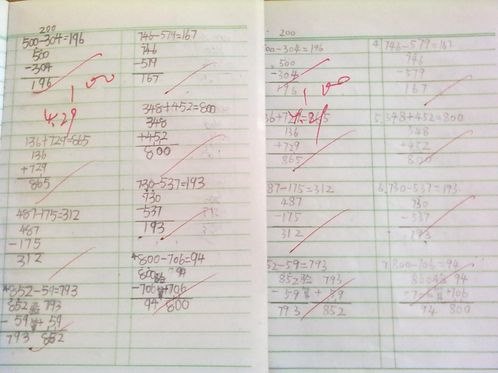 200
500-304=196
500
-304
196
100
4.29
136+729=865
136
+729
865
487-175=312
487
-175
312
852-59=793
852 验 793
- 59 算 + 59
793 852
746-579=167
746
-579
167
348+452=800
348
+452
800
730-537=193
730
-537
193
800-706=94
800 验 94
-706 算 +706
94 800
200
00-304=196
500
-304
196
100
4.29
36+729=865
136
+729
865
87-175=312
487
-175
312
52-59=793
852 验 793
- 59 算 + 59
793 852
4. 746-579=167
746
-579
167
5. 348+452=800
348
+452
800
6. 730-537=193
730
-537
193
7. 800-706=94
800 验 94
-706 算 +706
94 800